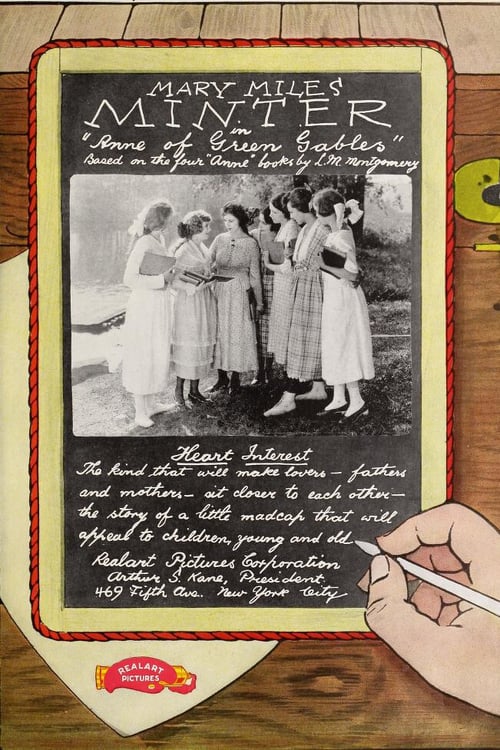 MARY MILES
MINTER
in
"Anne of Green Gables"
Based on the four "Anne" books by L.M. Montgomery
Heart Interest
The kind that will make lovers – fathers
and mothers – sit closer to each other –
the story of a little madcap that will
appeal to children, young and old.
Realart Pictures Corporation
Arthur S. Kane, President.
469 Fifth Ave. New York City
REALART
PICTURES